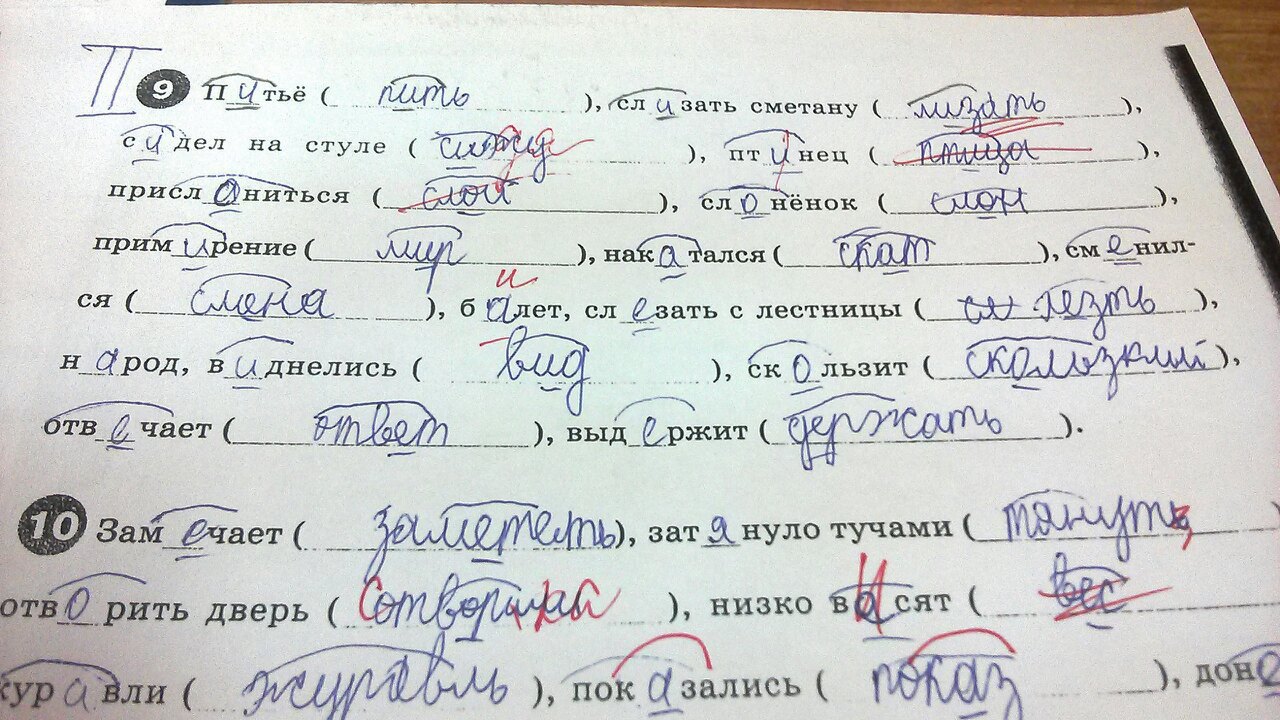 П 9 Питьё ( пить ), слизать сметану ( лизать ),
сидел на стуле ( ), птинец ( птица ),
присланиться ( слой ), слонёнок ( слон ),
примирение ( мир ), накатался ( скат ), сменил-
и
ся ( смена ), балет, слезать с лестницы ( лезть ),
народ, виднелись ( вид ), скользит ( скользкий ),
отвечает ( ответ ), выдержит ( держать ).
10 Замечает ( замететь ), затянуло тучами ( тянуть )
отворить дверь ( ), низко висят ( вес
журавли ( журавль ), показались ( показ ), доно